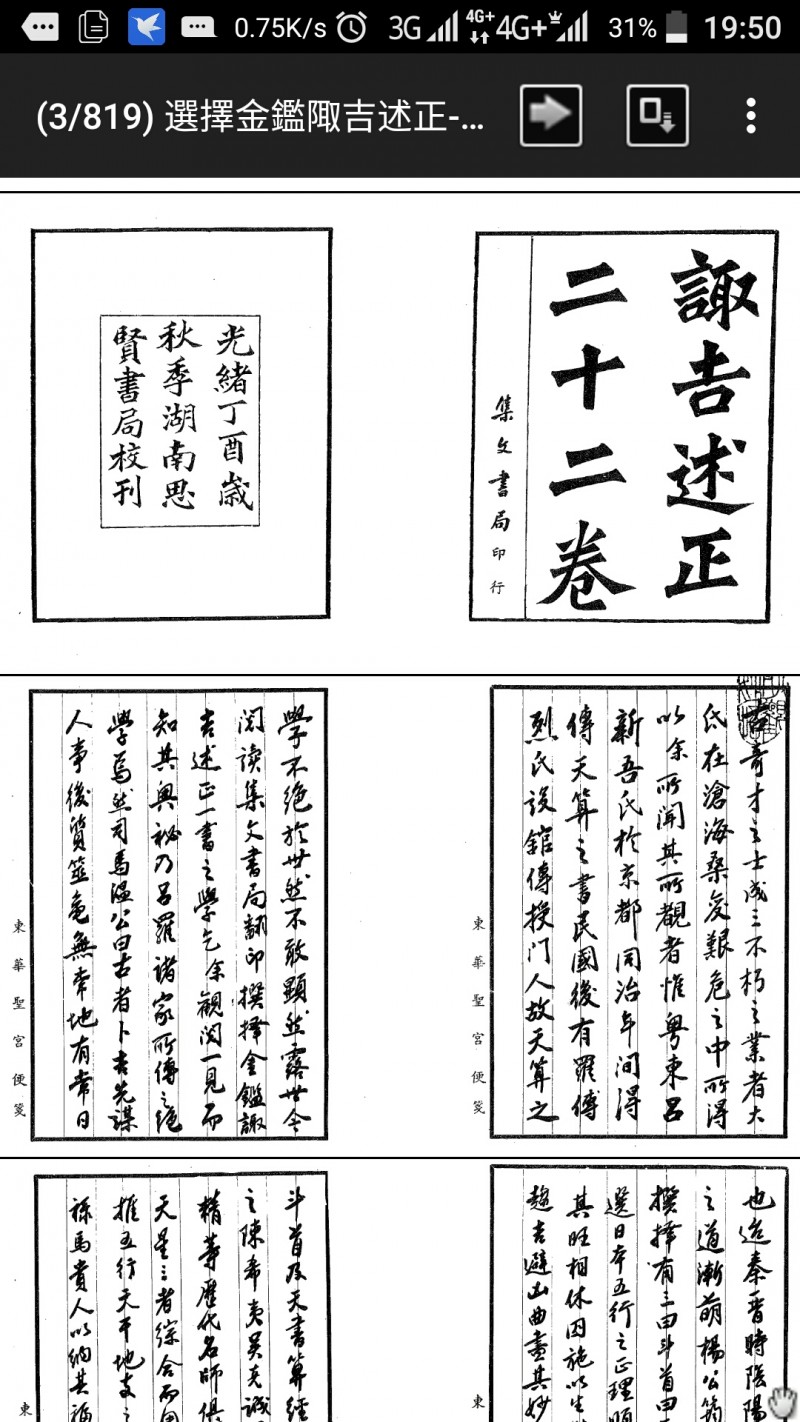 0.75K/s 3G 4G+ 4G+ 31% 19:50
(3/819) 選擇金鑑陬吉述正-...
諏吉述正
二十二卷
集文書局印行
光緒丁酉歲
秋季湖南思
賢書局校刊
古奇才之士成三不朽之業者大
氏在滄海桑艱危之中所得
以余所聞其所覩者惟粵東呂
新吾氏於京都同治年間得
傳天算之書民國後有羅傳
烈氏設舘傳授門人故天算之
東華聖宮便箋
學不絕於世然不敢顯然露世今
閱讀集文書局翻印撰擇金鑑諏
吉述正一書之學乞余觀閱一見而
知其奧祕乃呂羅諸家所傳之絕
學焉然司馬溫公曰古者卜吉先謀
人事後質筮龜無常地有常日
東華聖宮便箋
也迨秦晉時陰陽
之道漸萌楊公筠
撰擇有三曰斗首曰
選日本五行之正理順
其旺相休囚施以生
趨吉避凶曲盡其妙
東
斗首及天書算經
之陳希夷吳克誠
精萃歷代名師俱
天星三者綜合而用
推五行天干地支之
祿馬貴人以納其福
東